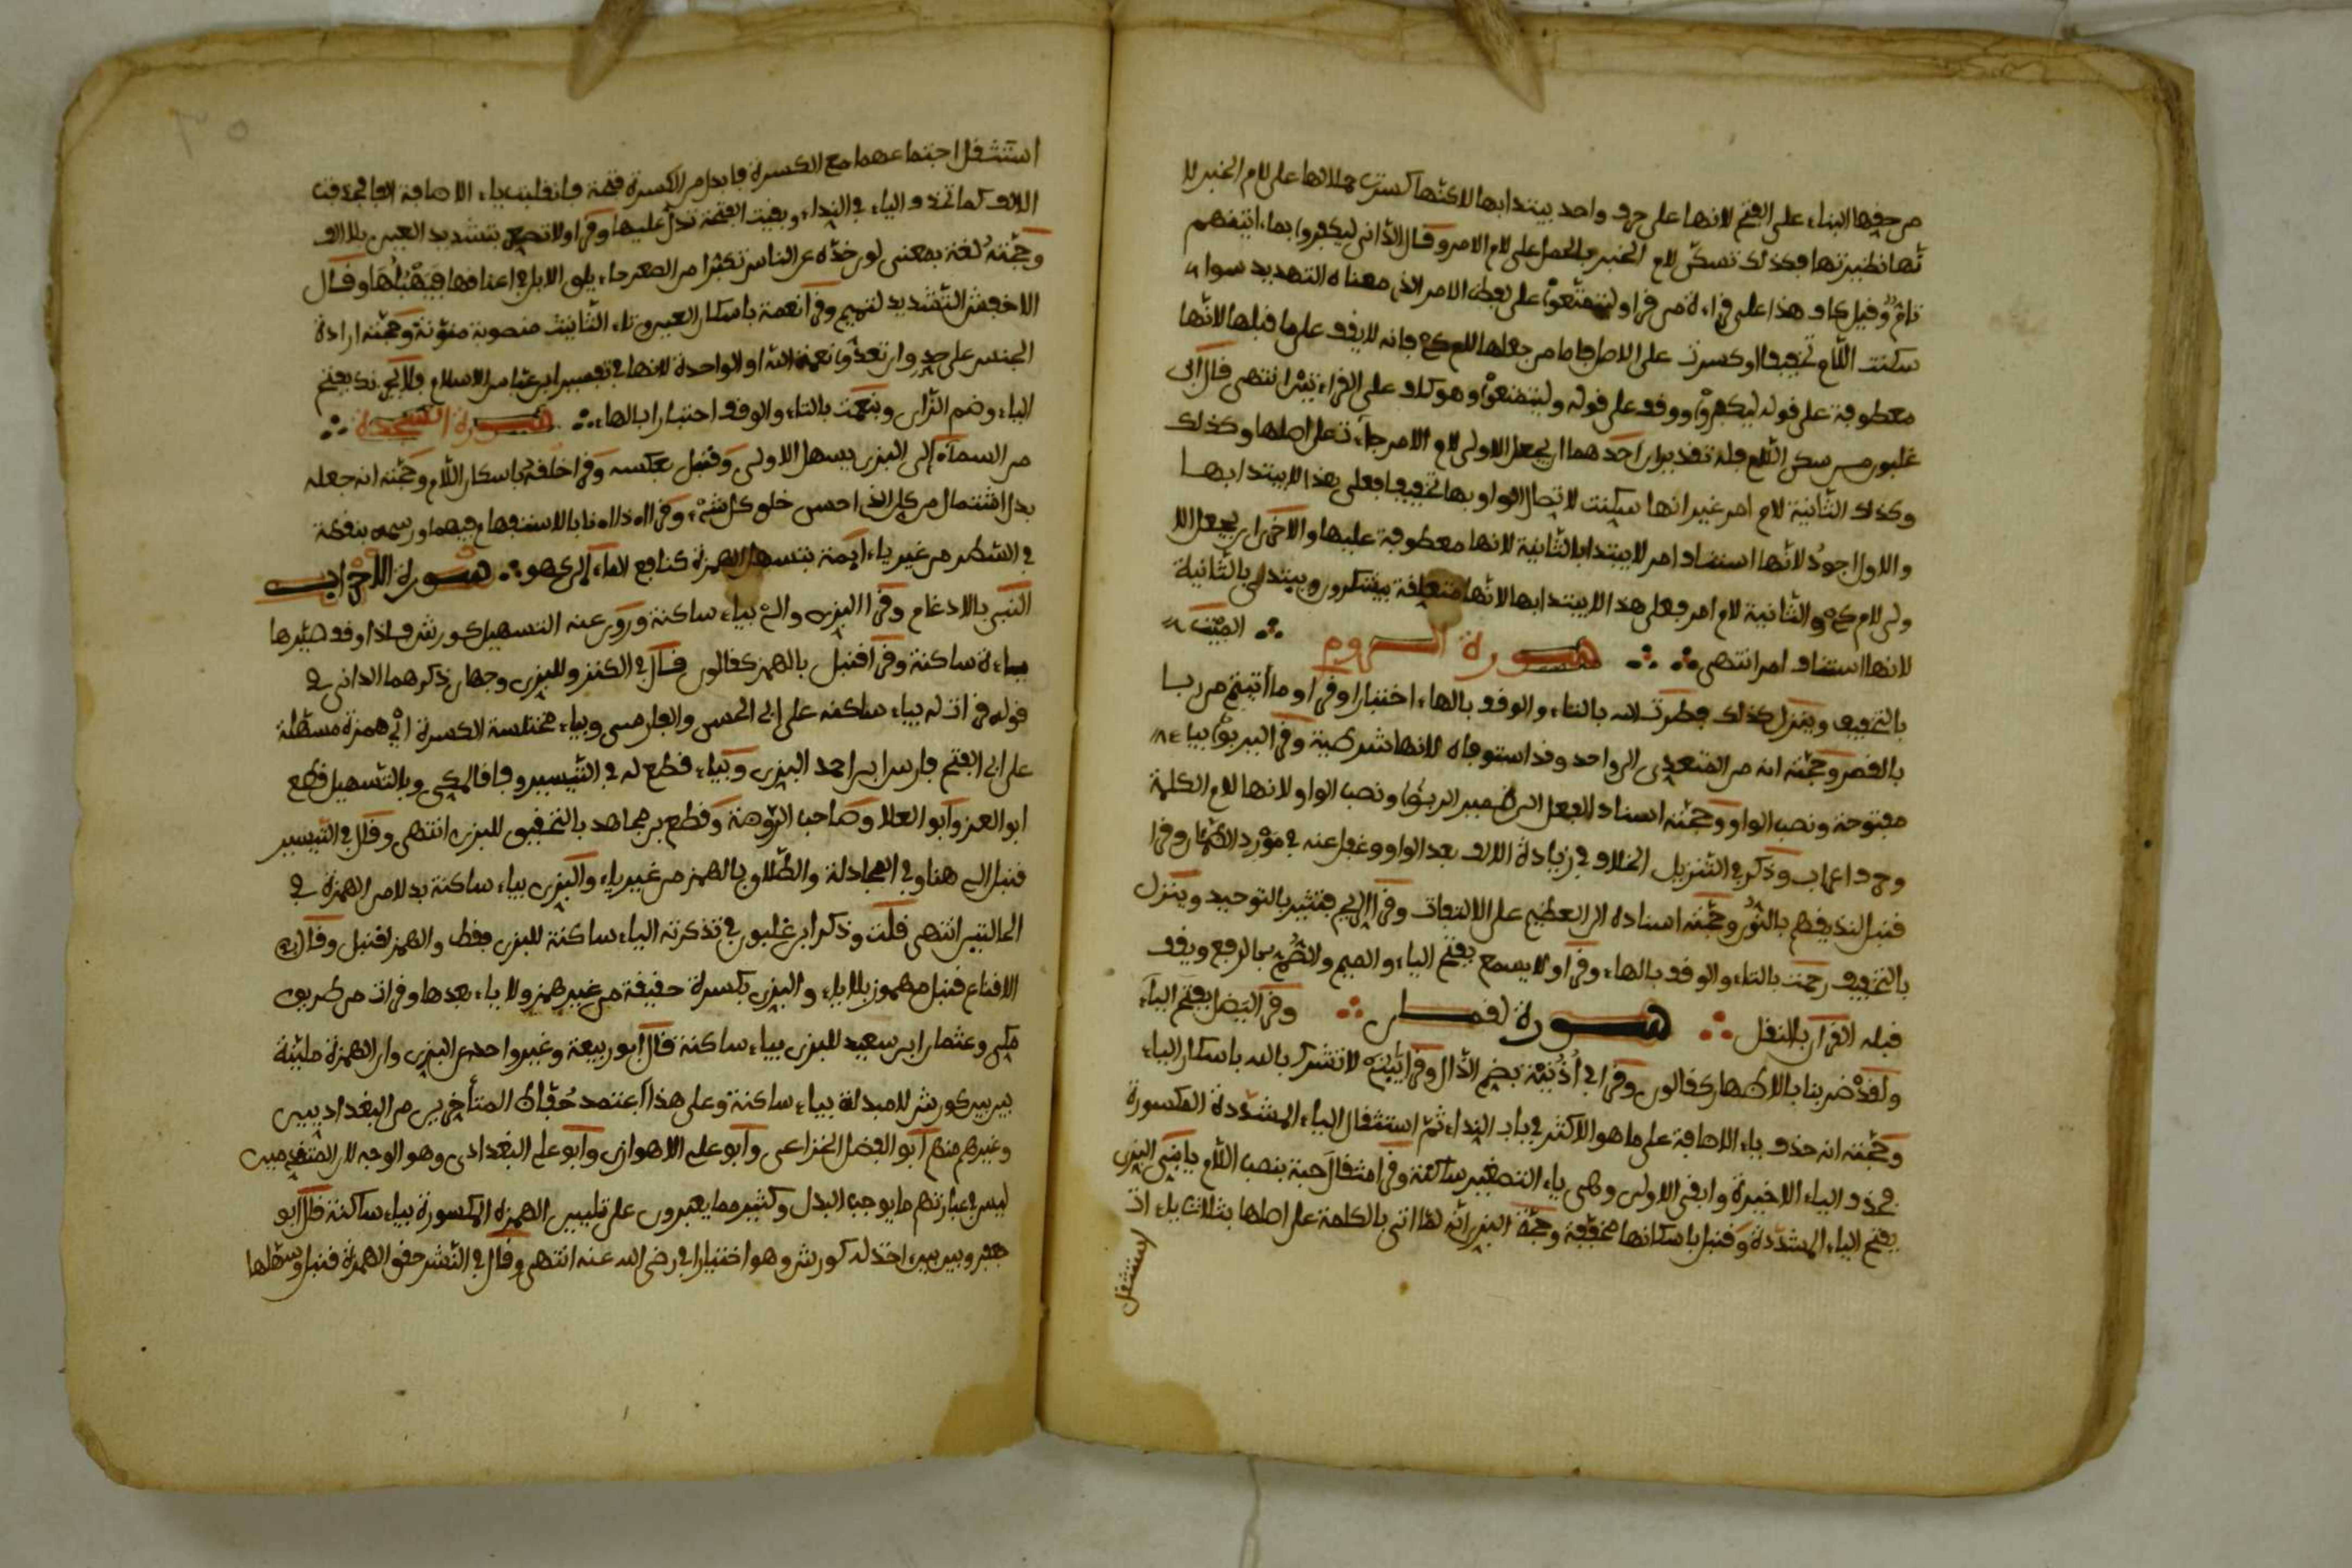 من حقها البناء على الفتح لانها على حرف واحد يبتدا بها لاكنها كسرت حملا لها على لام الخبر لا
نها نظيرتها فكذلك تسكن لام الخبر بالحمل على لام الامر وقال الداني ليكفروا بما اتينهم
تام وقيل كاف هذا على قراءة من قرا وليتمتعوا على لفظ الامر الذي معناه التهديد سوا
سكنت اللام تخفيفا او كسرت على الاصل فاما من جعلها لام كي فانه لا يقف على ما قبلها لانها
معطوفة على قوله ليكفروا ووقف على قوله وليتمتعوا وهو كاف على القراءتين انتهى قال ابن
غلبون من سكن اللام فله تقديران احدهما ان يجعل الاولى لام الامر جاءت على اصلها وكذلك
وكذلك الثانية لام امر غير انها سكنت لاتصال الواو بها تخفيفا فعلى هذا لا يبتدا بها
والاول اجود لانها استئناف امر لا يبتدا بالثانية لانها معطوفة عليها والاخر ان يجعل الا
ولى لام كي والثانية لام امر فعلى هذا لا يبتدا بها لانها متعلقة بيشركون ويبتدئ بالثانية
لانها استئناف امر انتهى سورة الروم الميت
بالتخفيف وينزل كذلك فطرت الله بالتاء والوقف بالهاء اختبارا وقرا وما أتيتم من ربا
بالقصر وحجته انه من المتعدي الى واحد وقد استوفاه لانها شرطية وقرا ليربوا بياء
مفتوحة ونصب الواو وحجته اسناد الفعل الى ضمير الربوا ونصب الواو لانها لام الكلمة
وحرف اعراب وذكر في التنزيل الخلاف في زيادة الالف بعد الواو وغفل عنه في مورد الظمآن وقرا
قنبل لنذيقهم بالنون وحجته اسناده الى العظيم على الالتفات وقرا الريح فتثير بالتوحيد وينزل
بالتخفيف رحمت بالتاء والوقف بالهاء وقرا ولا يسمع بفتح الياء والميم ولا الصم بالرفع ويقف
قبله القرآن بالنقل سورة لقمان وقرا ليضل بفتح الياء
ولقد ضربنا بالاظهار كقالون وقرا في أذنيه بضم الذال وقرا يبني لا تشرك بالله باسكان الياء
وحجته انه حذف ياء الاضافة على ما هو الاكثر في باب النداء ثم استثقل الياء المشددة المكسورة
فحذف الياء الاخيرة وابقى الاولى وهي ياء التصغير ساكنة وقرا مثقال حبة بنصب اللام يابني البزي
بفتح الياء المشددة وقنبل باسكانها مخففة وحجة البزي انه لما اتى بالكلمة على اصلها بثلاث ياءات
استثقل
استثقل اجتماعهما مع الكسرة فابدل من الكسرة فتحة فانقلبت ياء الاضافة الفا فحذفت
الالف كما تحذف الياء في النداء وبقيت الفتحة تدل عليها وقرا ولا تصعر بتشديد العين بلا الف
وحجته لغة بمعنى لوى خده عن الناس تكبرا من الصعر داء يلوي الابل في اعناقها وقال
الاخفش التشديد لتميم وقرا نعمة باسكان العين وتاء التانيث منصوبة منونة وحجته ارادة
الجنس على حد وان تعدوا نعمة الله او الواحدة لانها في تفسير ابن عباس الاسلام فلا يحزنك بفتح
الياء وضم الزاي وبنعمت بالتاء والوقف اختبارا بالهاء سورة السجدة
من السماء الى البزي يسهل الاولى وقنبل بعكسه وقرا خلقه باسكان اللام وحجته انه جعله
بدل اشتمال من كل اي احسن خلق كل شيء وقرا اءذا اءنا بالاستفهام فيهما ورسمه بنقطة
في السطر من غير ياء ايمة بتسهيل الهمزة كنافع الماء الى كهو سورة الاحزاب
النبي بالادغام وقرا البزي والي بياء ساكنة وروي عنه التسهيل كورش فاذا وقف صيرها
ياء ساكنة وقرا قنبل بالهمز كقالون قال في الكنز وللبزي وجهان ذكرهما الداني في
قوله قرات له بياء ساكنة على ابي الحسن والفارسي وبياء مختلسة الكسرة اي همزة مسهلة
على ابي الفتح فارس ابن احمد البزي وبياء قطع له في التيسير وفاقا لمكي وبالتسهيل قطع
ابو العز وابو العلا وصاحب الروضة وقطع بن مجاهد بالتحقيق للبزي انتهى وقال في التيسير
قنبل الي هنا وفي المجادلة والطلاق بالهمز من غير ياء والبزي بياء ساكنة بدلا من الهمزة في
الحالتين انتهى قلت وذكر ابن غلبون في تذكرته الياء ساكنة للبزي فقط والهمز لقنبل وقال في
الاقناع قنبل مهموز بلا ياء والبزي بكسرة خفيفة من غير همز ولا ياء بعدها وقرات من طريق
مكي وعثمان ابن سعيد للبزي بياء ساكنة قال ابو ربيعة وغير واحد عن البزي وان الهمزة ملينة
بين بين كورش لا مبدلة بياء ساكنة وعلى هذا اعتمد حذاق المتأخرين من البغداديين
وغيرهم منهم ابو الفضل الخزاعي وابو علي الاهوازي وابو علي البغدادي وهو الوجه لان المتقدمين
ليس في عبارتهم ما يوجب البدل وكثير مما يعبرون على تليين الهمزة المكسورة بياء ساكنة قال ابو
جعفر وبين بين اخذ له كورش وهو اختيار ابي رضي الله عنه انتهى وقال في النشر حقق الهمزة قنبل وسهلها